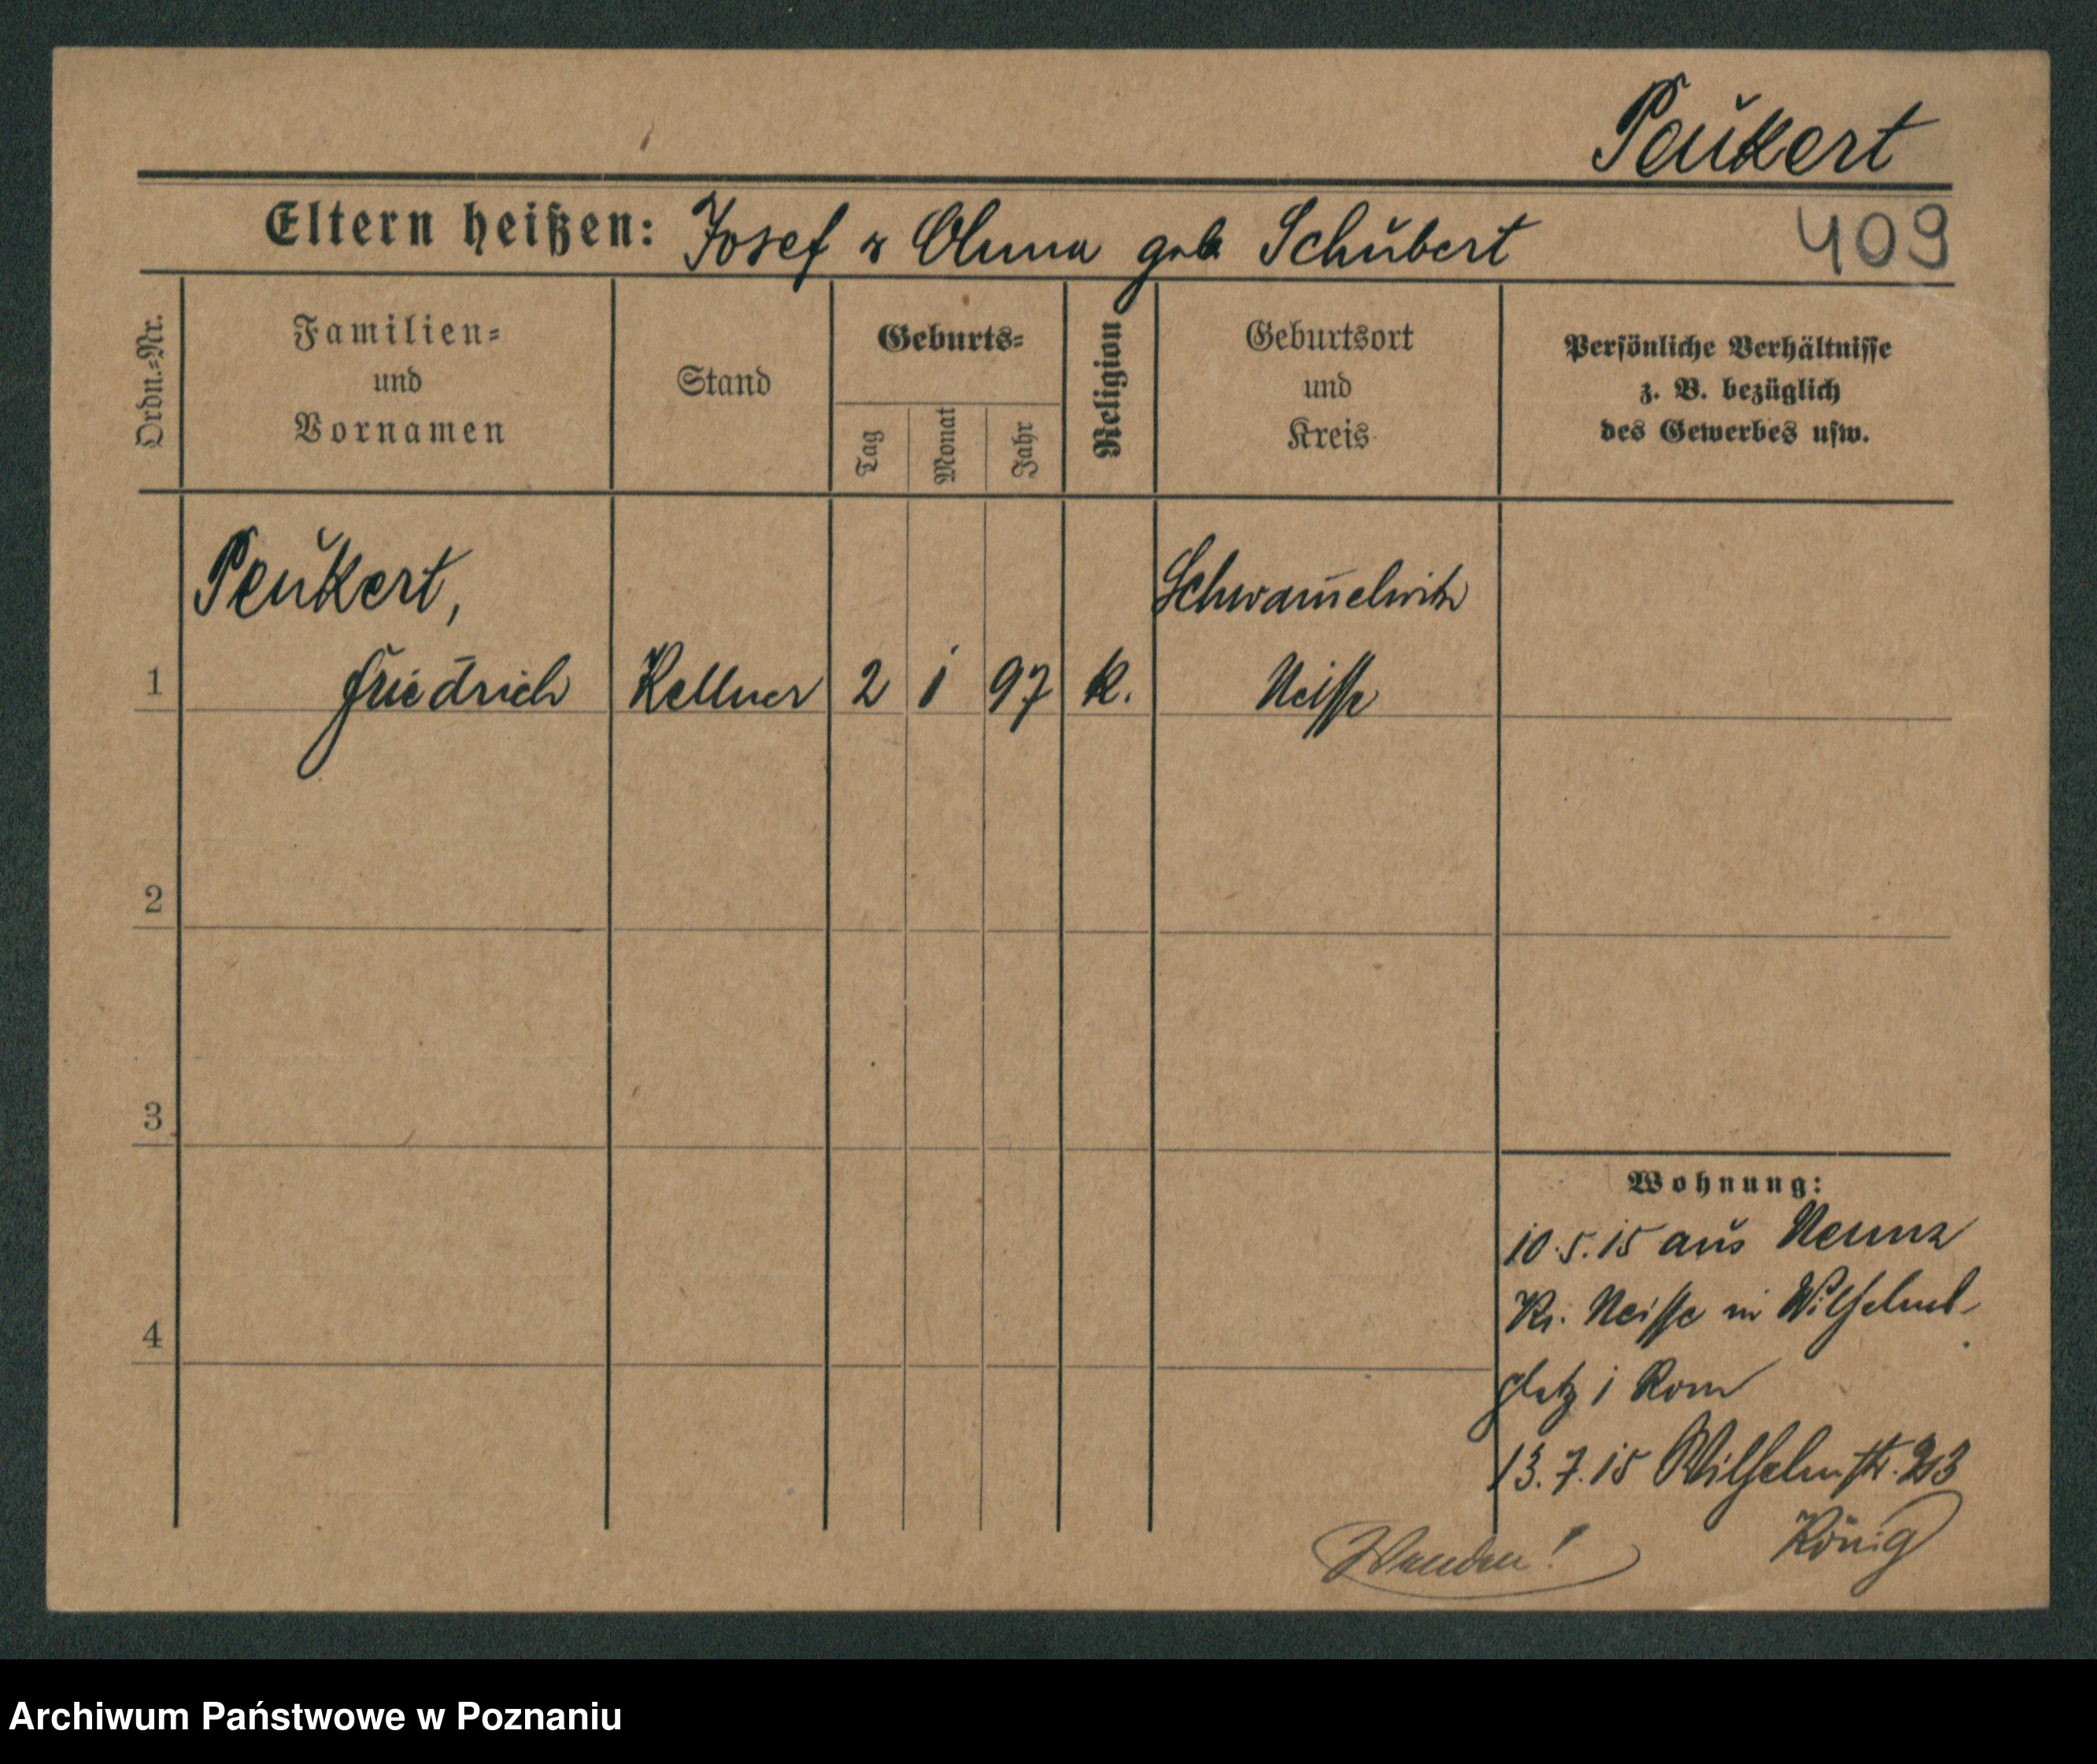 Peukert
Eltern heißen: Josef & Anna geb Schubert
409
Ordn.=Nr.
Familien=
und
Vornamen
Stand
Geburts=
Tag
Monat
Jahr
Religion
Geburtsort
und
Kreis
Persönliche Verhältnisse
z. B. bezüglich
des Gewerbes usw.
Peukert,
Schwam̄elwitz
1 Friedrich Kellner 2 1 97 k. Neisse
2
3
4
Wohnung:
10.5.15 aus Neunz
Kr. Neisse in Wilhelms-
platz 1 Rom
13.7.15 Wilhelmstr. 23
König
Wenden!
Archiwum Państwowe w Poznaniu